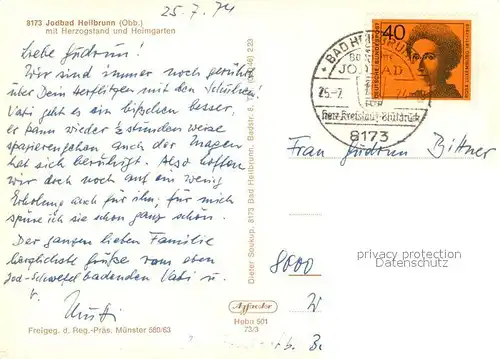 25.7.74
8173 Jodbad Heilbrunn (Obb.)
mit Herzogstand und Heimgarten
Liebe Gudrun!
Wir sind immer noch gerührt
über Dein Herflitzen mit den Schuhen!
Vati geht es ein bißchen besser,
er kann wieder stundenweise
spazierengehen auch der Magen
hat sich beruhigt. Also hoffen
wir doch noch auf ein wenig
Erholung auch für ihn; für mich
spüre ich sie schon ganz schön.
Der ganzen lieben Familie
herzlichste Grüße vom eben
Jod-Schwefel badenden Vati u.
v. Mutti
Freigeg. d. Reg.-Präs. Münster 560/63
Dieter Soukup, 8173 Bad Heilbrunn, Badstr.
Agfacolor
Hebu 501
73/3
DEUTSCHE BUNDESPOST
40
BAD HEILBRUNN
JODBAD
25.-7.
Herz, Kreislauf, Blutdruck
8173
Frau Gudrun Bittner
privacy protection
Datenschutz
8000